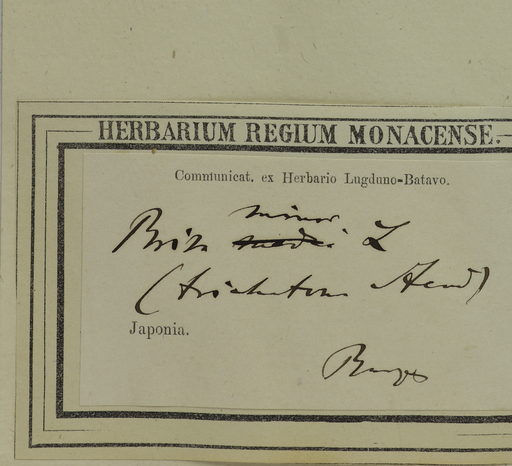 HERBARIUM REGIUM MONACENSE.
Communicat. ex Herbario Lugduno-Batavo.
minor
Briza media L
(
Japonia.